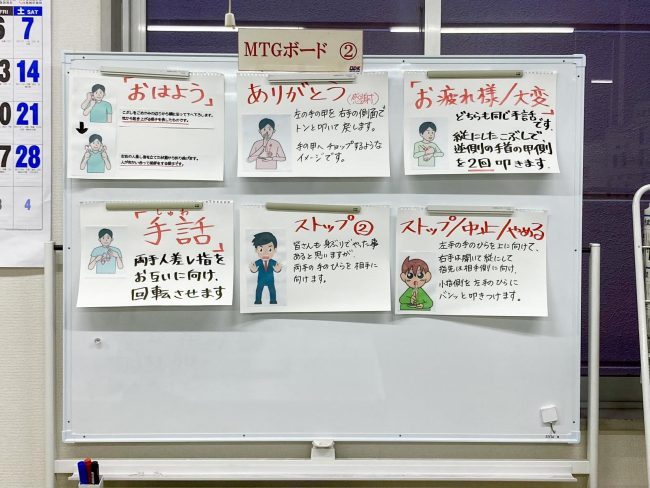 FRI
土 SAT
6
7
13
14
20
21
27
28
3
4
MTGボード ②
「おはよう」
こぶしをこめかみの辺りから頬に沿って下へ下ろします。
「ありがとう
(感謝)
左の手の甲を 右手の側面で
トントン叩いて 戻します。
手の甲へ チョップするような
イメージです。
「お疲れ様/大変
どちらも同じ手話
です。
縦にしたこぶしで、
逆側の手首の甲側
を2回 叩きます。
しゅわ
「手話」
両手人差し指を
お互いに向け、
回転させます
ストップ②
皆さんも 身ぶりでやった事
あると思いますが、
両手の手のひらを 相手に
向けます。
ストップ/中止/やめる
左手の手のひらを上に向けて、
右手は開いて 縦にして
指先は相手側に向け、
小指側を 左手のひらに
バンッと叩きつけます。